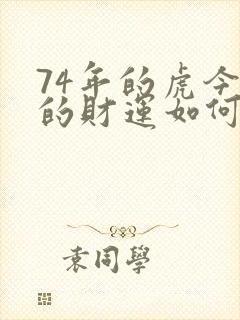 74年的虎今
的財運如何
袁同學